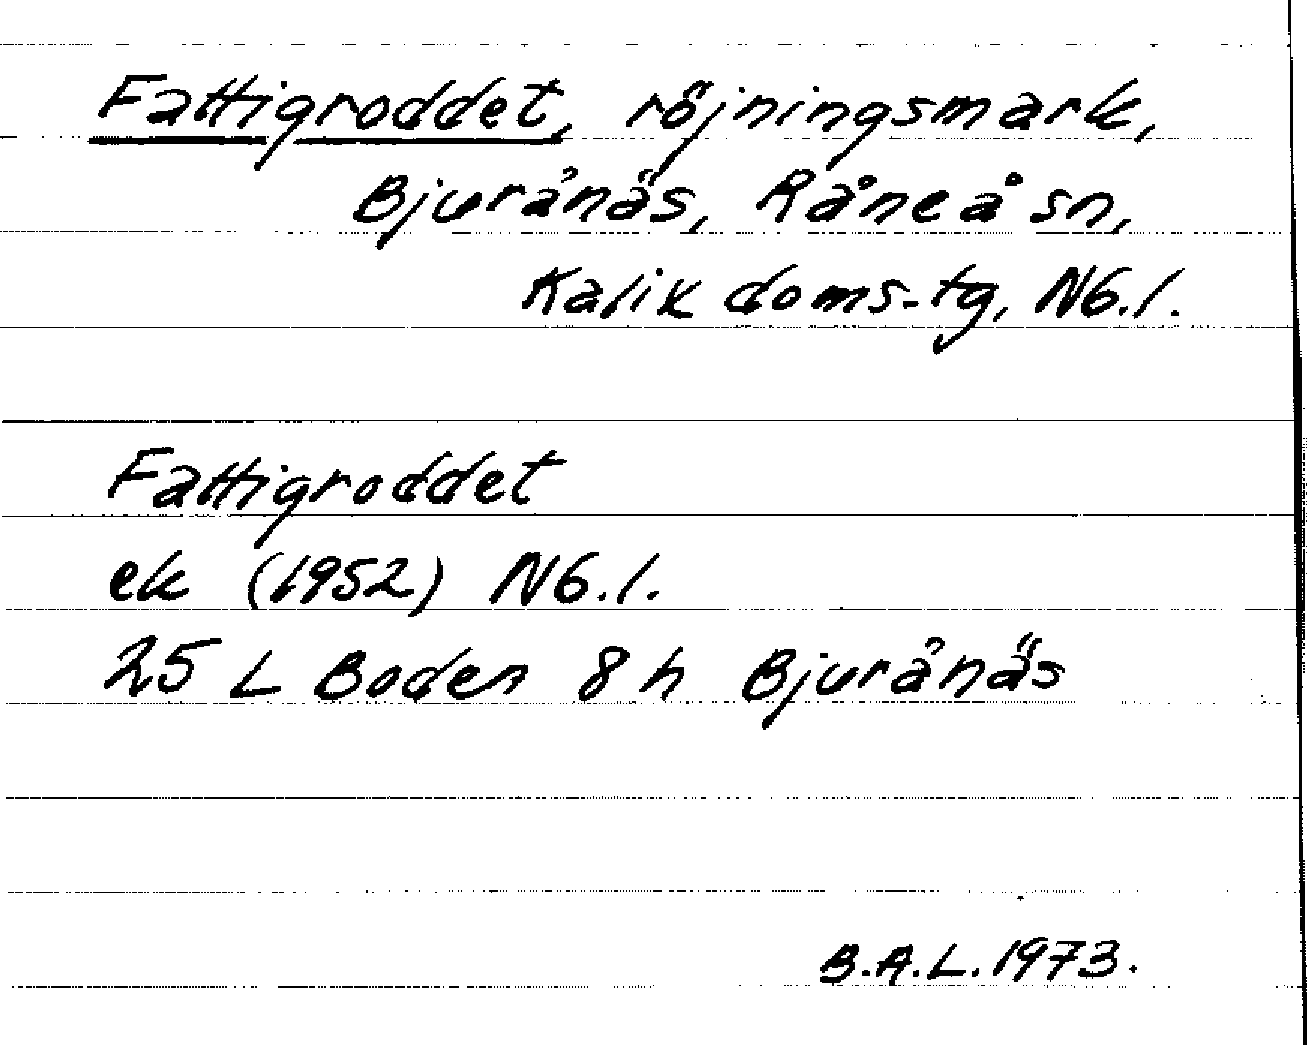 Fattigroddet, röjningsmark,
Bjurånäs, Råneå sn,
Kalix doms-tg, Nb.l.
Fattigroddet
ek (1952) Nb.l.
25 L Boden 8 h Bjurånäs
B.A.L. 1973.